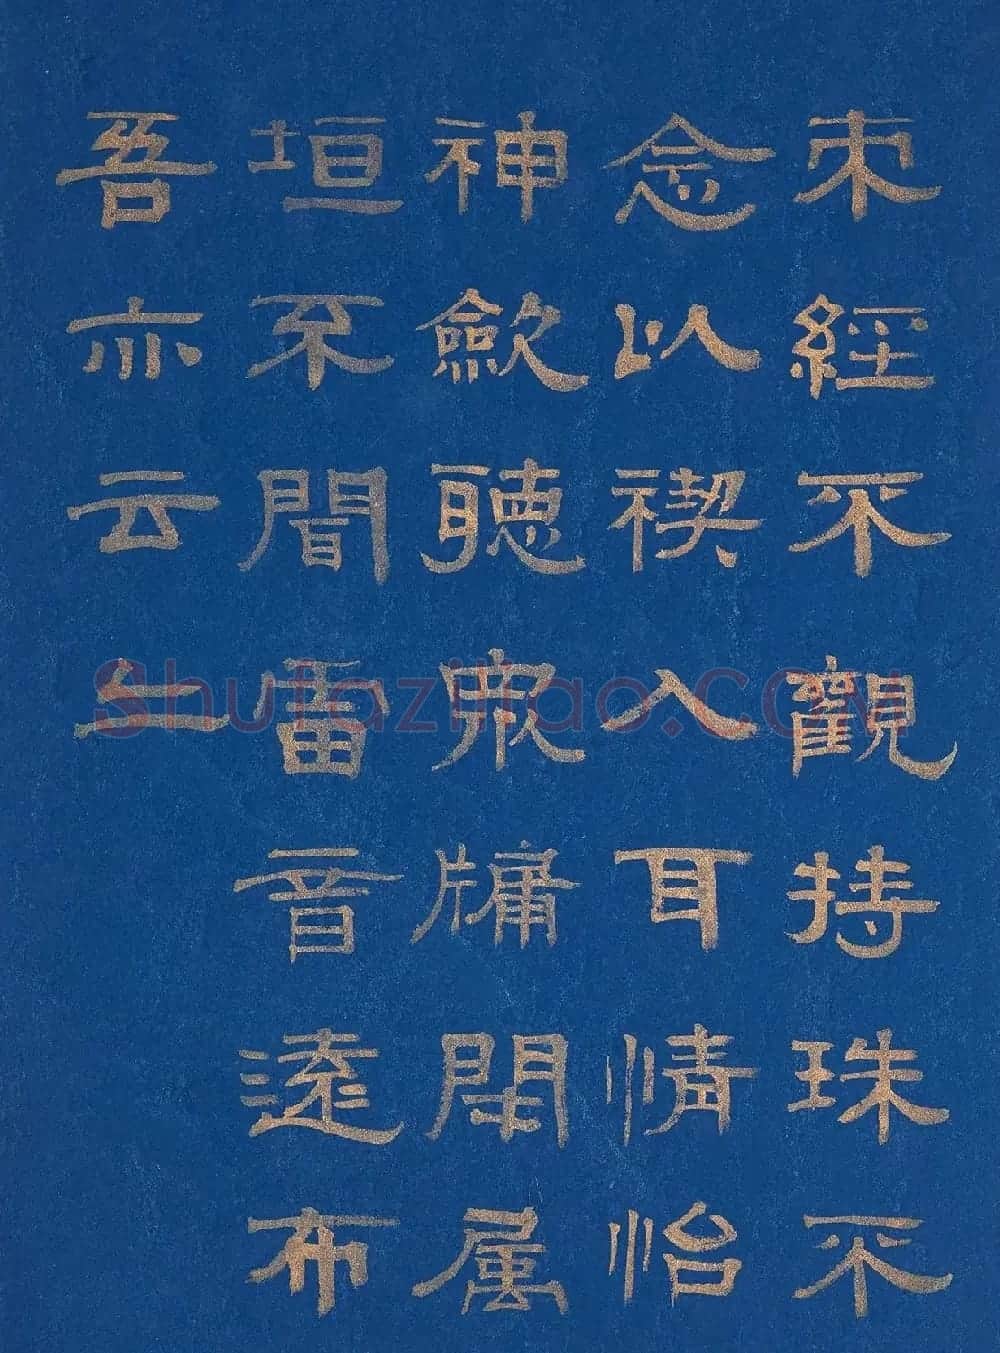 束經不觀持珠不
念以禊入耳情怡
神歛聽眾牖閉属
垣不聞雷音遠布
吾亦云二
Shufaziliao.COM